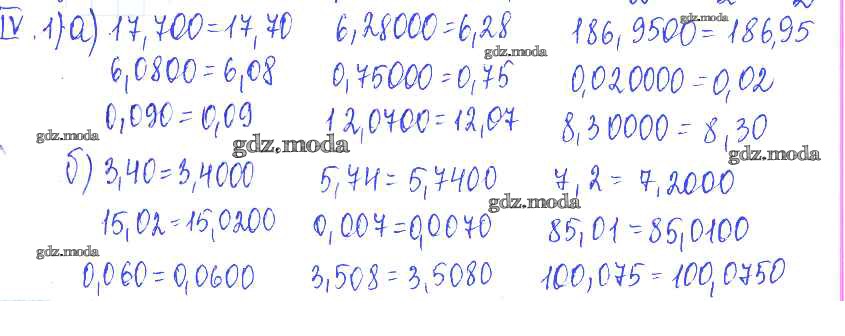 IV. 1) а) 17,700=17,70 6,28000=6,28 186,9500=186,95
gdz.moda
gdz.moda
6,0800=6,08 0,75000=0,75 0,020000=0,02
0,090=0,09 12,0700=12,07 8,30000=8,30
gdz.moda
gdz.moda
gdz.moda
б) 3,40=3,4000 5,74=5,7400 7,2=7,2000
gdz.moda
15,02=15,0200 0,007=0,0070 85,01=85,0100
gdz.moda
0,060=0,0600 3,508=3,5080 100,075=100,0750